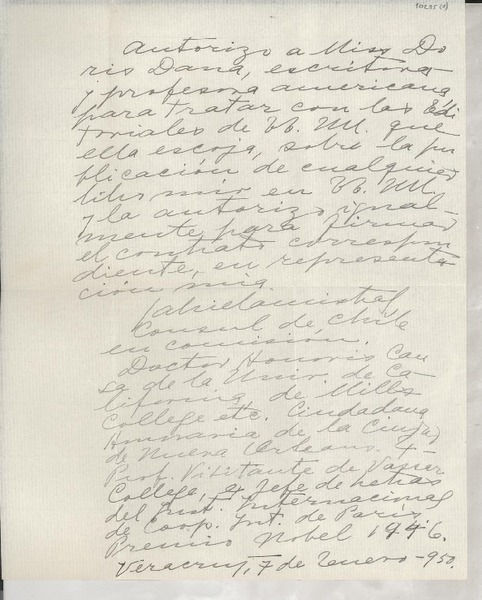 Autorizo a Miss Do
ris Dana, escritora
y profesora americana
para tratar con las Edi
toriales de EE. UU. que
ella escoja, sobre la pu
blicación de cualquier
libro mio en EE. UU.
y la autorizo igual-
mente para firmar
el contrato correspon
diente, en representa
ción mia.
Gabriela Mistral
Consul de Chile
en comision.
Doctor Honoris Cau
sa de la Univ. de Ca-
lifornia, de Mills
College etc. Ciudadana
Honoraria de la Ciudad
de Nueva Orleans. +-
Prof. Visitante de Vassar
College, ex Jefe de Letras
del Inst. Internacional
de Coop. Int. de París,
Premio Nobel 1946.
Veracruz, 7 de Enero -950.